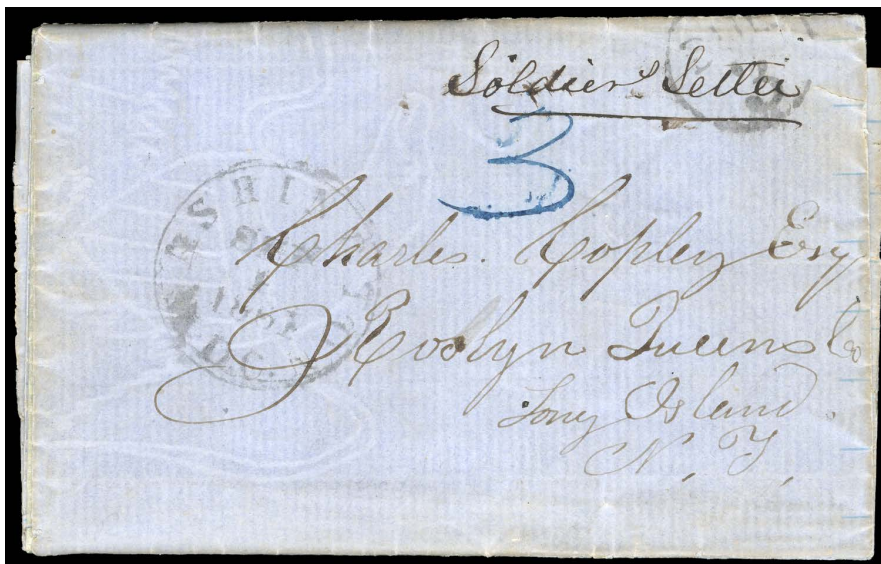 Soldiers Letter
3
Charles. Copley Esq
Roslyn Queens Co
Long Island.
N. Y.
1861